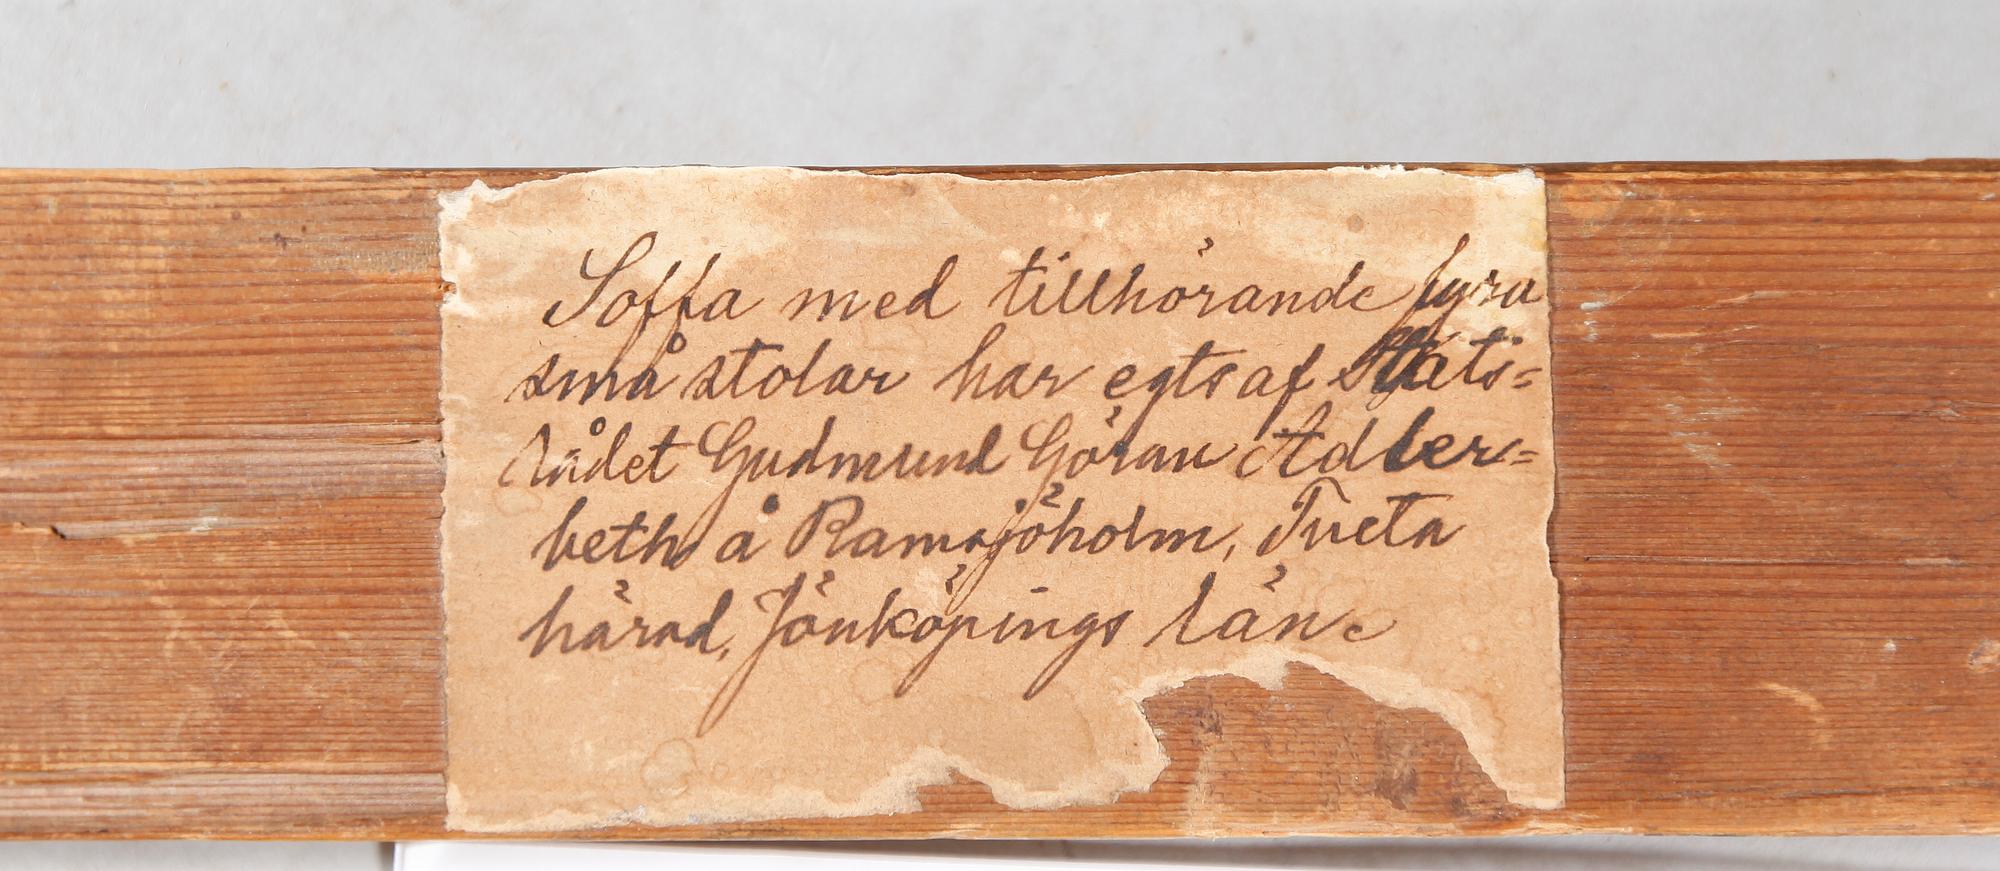 Soffa med tillhörande fyra
små stolar har egts af Stats=
rådet Gudmund Göran Adler=
beth å Ramsjöholm, Tveta
härad, Jönköpings län.